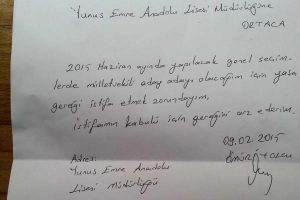 Yunus Emre Anadolu Lisesi Müdürlüğüne
ORTACA
2015 Haziran ayında yapılacak genel seçim-
lerde milletvekili aday adayı olacağım için yasa
gereği istifa etmek zorundayım,
istifamın kabulü için gereğini arz ederim.
09.02.2015
Adres:
Yunus Emre Anadolu
Lisesi Müdürlüğü